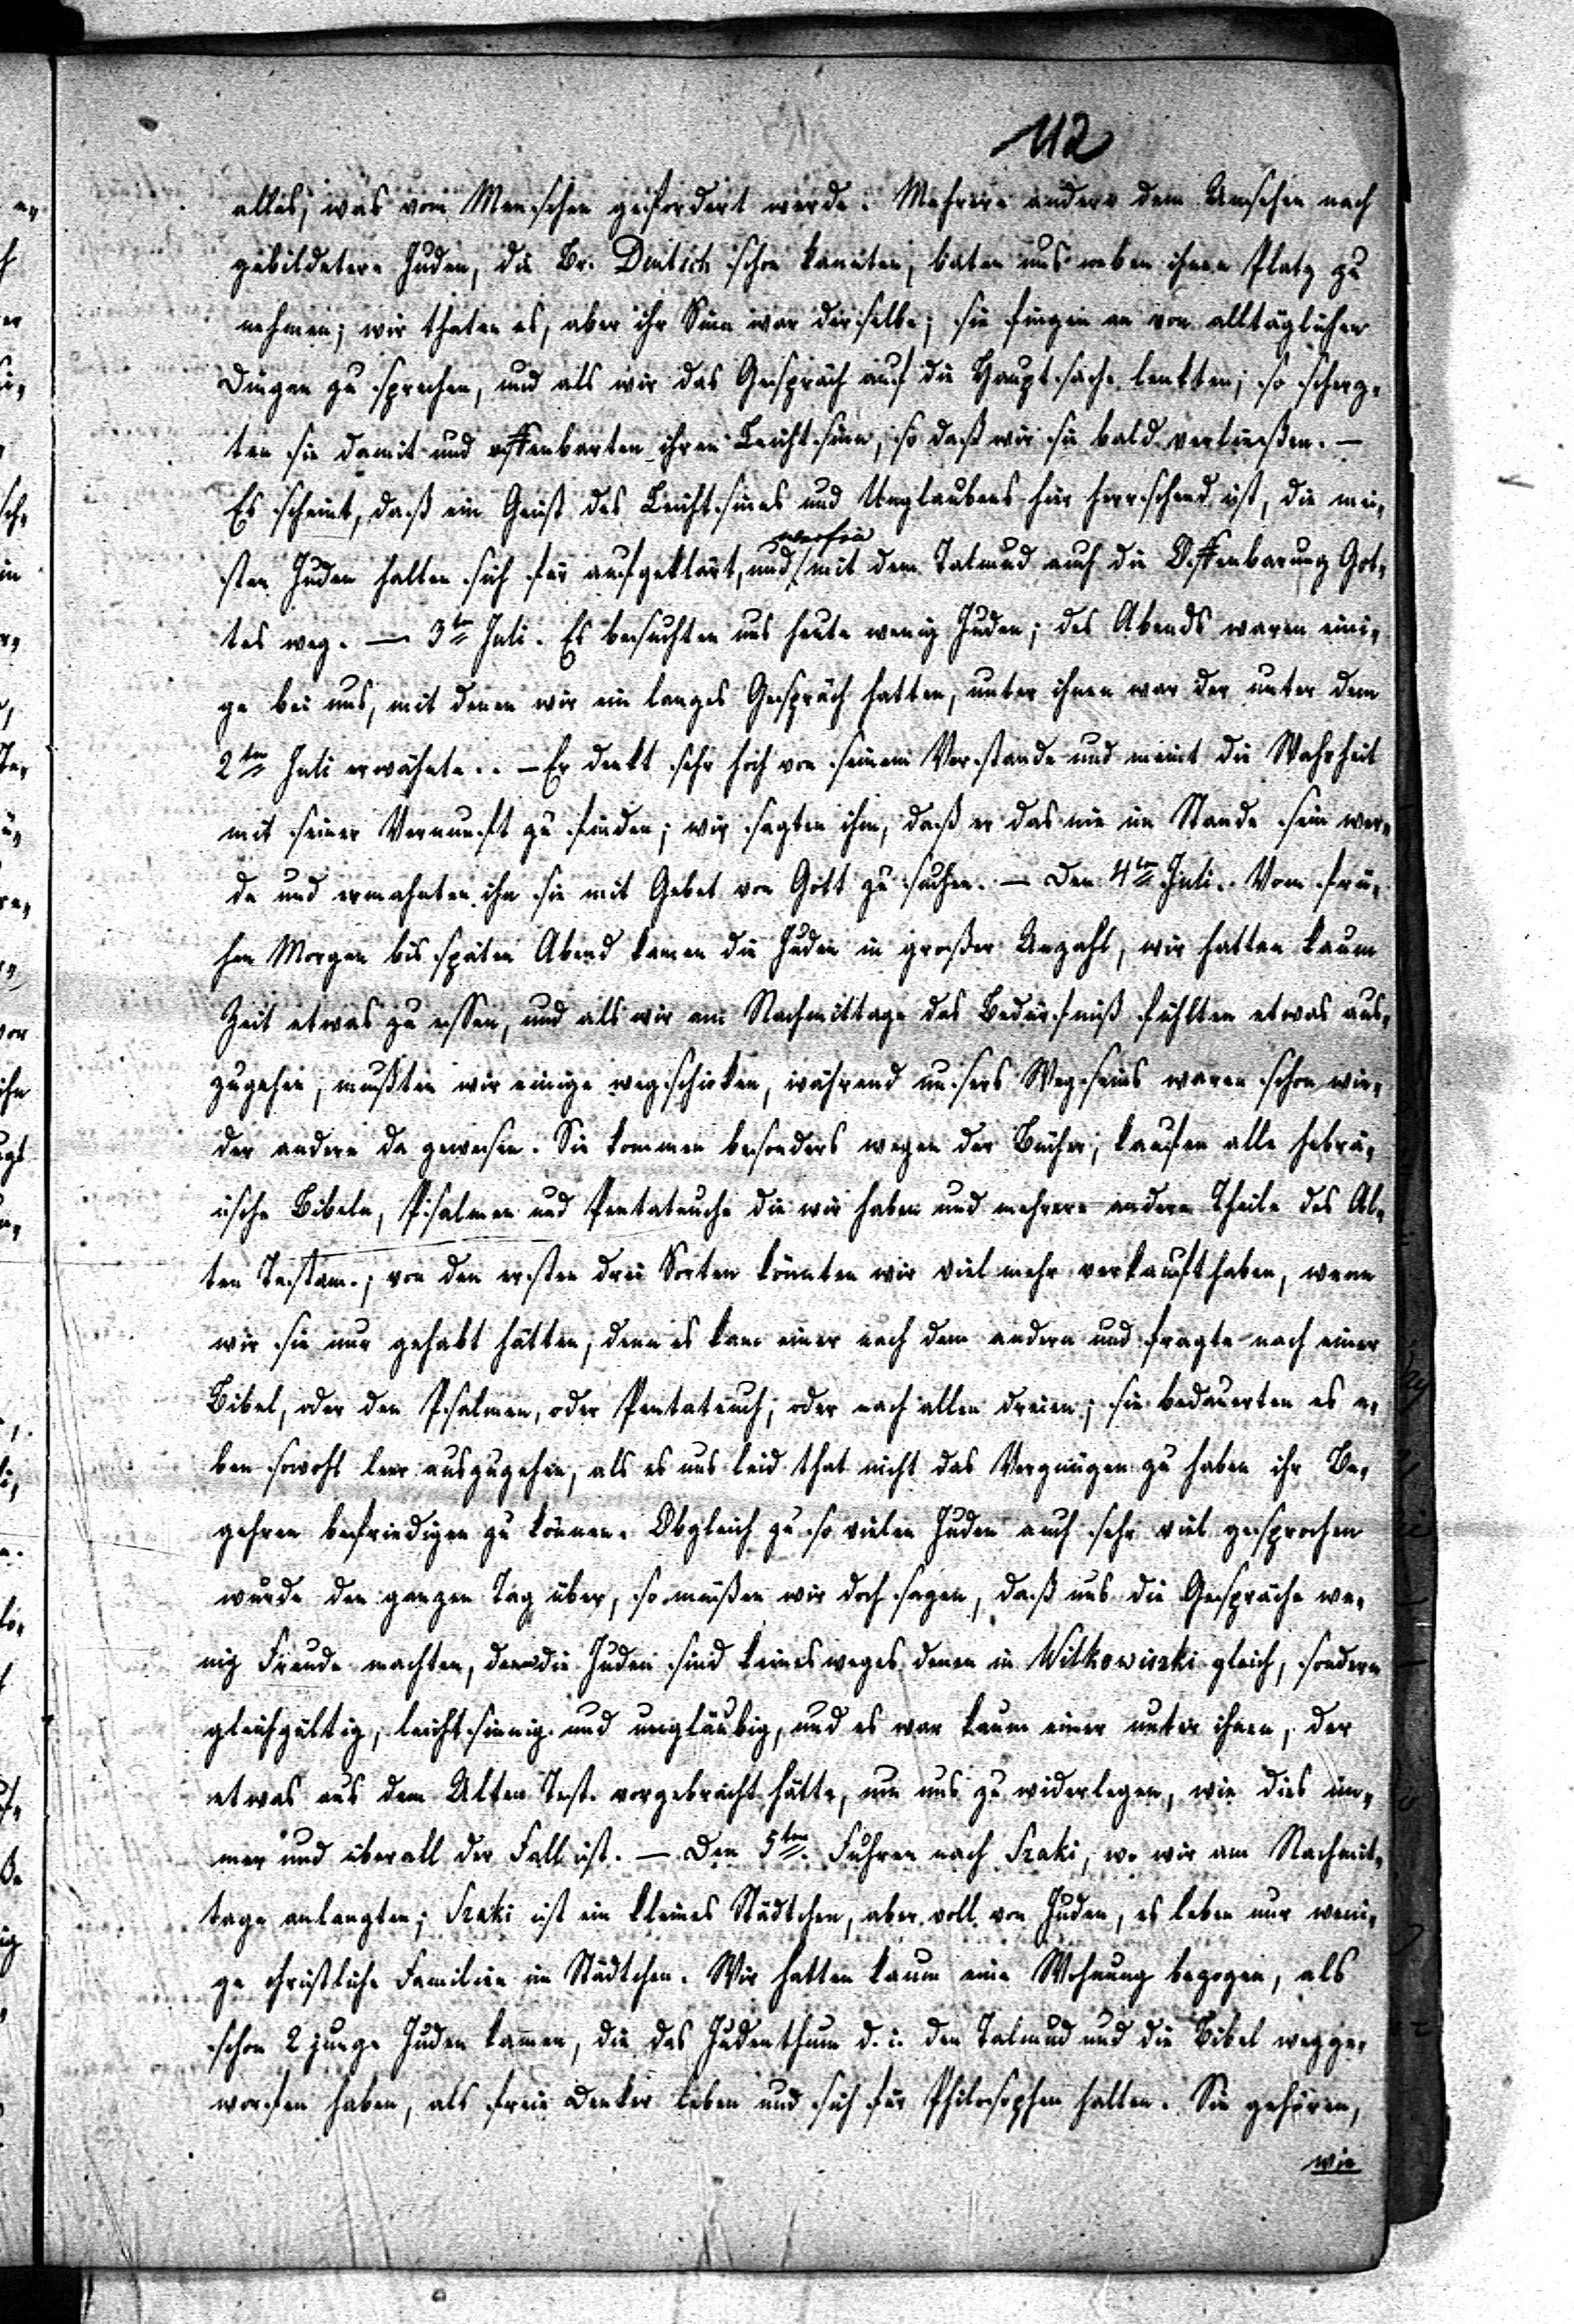 112
alles, was vom Menschen gefordert werde. Mehrere andere dem Ansehen nach
gebildetere Juden, die Br. Deutsch schon kannten, baten uns neben ihnen Platz zu
nehmen; wir thaten es, aber ihr Sinn war derselbe; sie fingen an von alltäglichen
Dingen zu sprechen, und als wir das Gespräch auf die Hauptsache lenkten; so scherz-
ten sie damit und offenbarten ihren Leichtsinn, so daß wir sie bald verließen. —
Es scheint, daß ein Geist des Leichtsinns und Unglaubens hier herrschend ist, die mei-
werfen
sten Juden halten sich für aufgeklärt, und mit dem Talmud auch die Offenbarung Got-
tes weg. — 3ten Juli. Es besuchten uns heute wenig Juden; des Abends waren eini-
ge bei uns, mit denen wir ein langes Gespräch hatten, unter ihnen war der unter dem
2ten Juli erwähnte. — Er denkt sehr hoch von seinem Verstande und meint die Wahrheit
mit seiner Vernunft zu finden; wir sagten ihm, daß er das nie im Stande sein wer-
de und ermahnten ihn sie mit Gebet von Gott zu suchen. — Den 4ten Juli. Vom frü-
hen Morgen bis späten Abend kamen die Juden in großer Anzahl, wir hatten kaum
Zeit etwas zu essen, und als wir am Nachmittage das Bedürfniß fühlten etwas aus-
zugehen, mußten wir einige wegschicken, während unsers Wegseins waren schon wie-
der andere da gewesen. Sie kommen besonders wegen der Bücher; kaufen alle hebrä-
ische Bibeln, Psalmen und Pentateuche die wir haben und mehrere andere Theile des Al-
ten Testam.; von den ersten drei Sorten könnten wir viel mehr verkauft haben, wenn
wir sie nur gehabt hätten, denn es kam einer nach dem andern und fragte nach einer
Bibel, oder den Psalmen, oder Pentateuch, oder nach allen dreien; sie bedauerten es e-
ben sowohl leer auszugehen, als es uns leid that nicht das Vergnügen zu haben ihr Be-
gehren befriedigen zu können. Obgleich zu so vielen Juden auch sehr viel gesprochen
wurde den ganzen Tag über, so müßen wir doch sagen, daß uns die Gespräche we-
nig Freude machten, denn die Juden sind keinesweges denen in Wilkowiszki gleich, sondern
gleichgültig, leichtsinnig und ungläubig, und es war kaum einer unter ihnen, der
etwas aus dem Alten Test. vorgebracht hätte, um uns zu widerlegen, wie dies im-
mer und überall der Fall ist. — Den 5ten. Fuhren nach Szaki, wo wir am Nachmit-
tage anlangten; Szaki ist ein kleines Städtchen, aber voll von Juden, es leben nur weni-
ge christliche Familien im Städtchen. Wir hatten kaum eine Wohnung bezogen, als
schon 2 junge Juden kamen, die das Judenthum d. i. den Talmud und die Bibel wegge-
worfen haben, als freie Denker leben und sich für Philosophen halten. Sie gehören,
wie